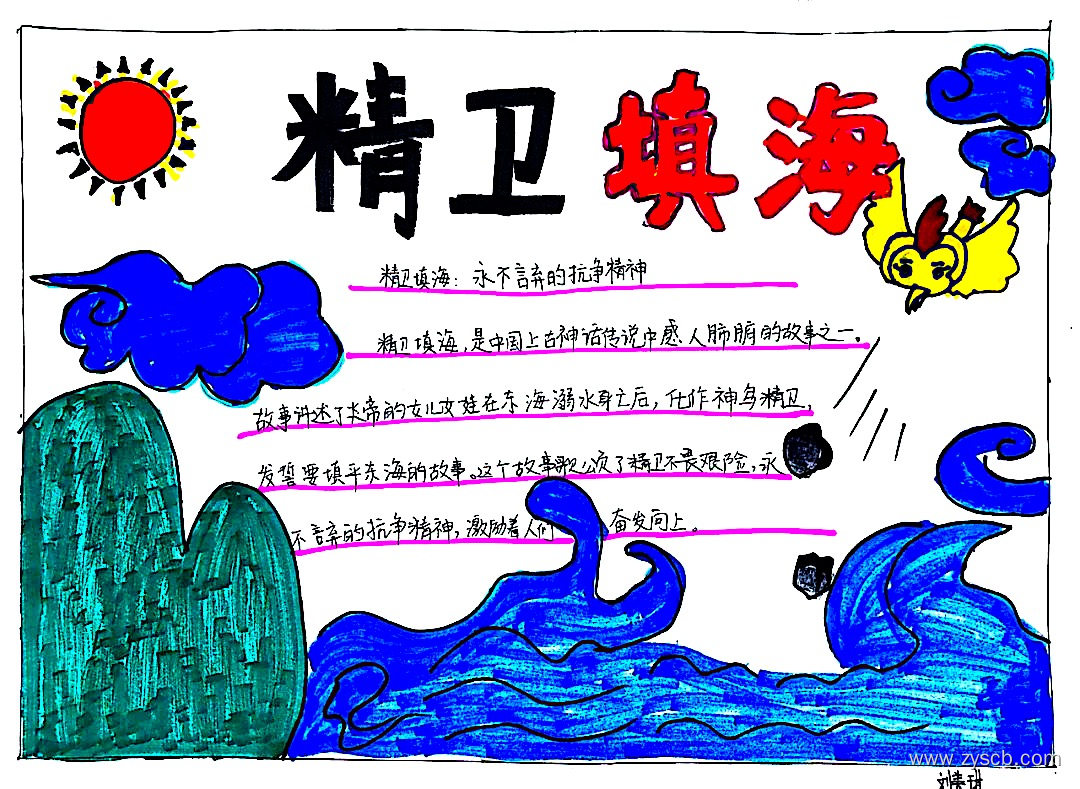 精卫填海
精卫填海：永不言弃的抗争精神
精卫填海，是中国上古神话传说中感人肺腑的故事之一。
故事讲述了炎帝的女儿女娃在东海溺水身亡后，化作神鸟精卫，
发誓要填平东海的故事。这个故事歌颂了精卫不畏艰险，永
不言弃的抗争精神，激励着人们 奋发向上。
www.zyscb.com